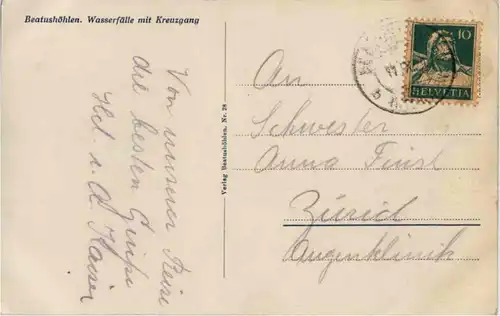 Beatushöhlen. Wasserfälle mit Kreuzgang
Von unserer Reise
die besten Grüße
Hd. u. A. Kaiser
Verlag Beatushöhlen, Nr. 28
10
HELVETIA
An
Schwester
Anna Finst
Zürich
Augenklinik